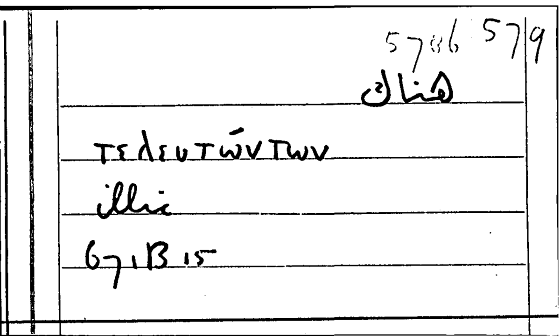 579
هناك
τελευτώντων
illic
671B 15